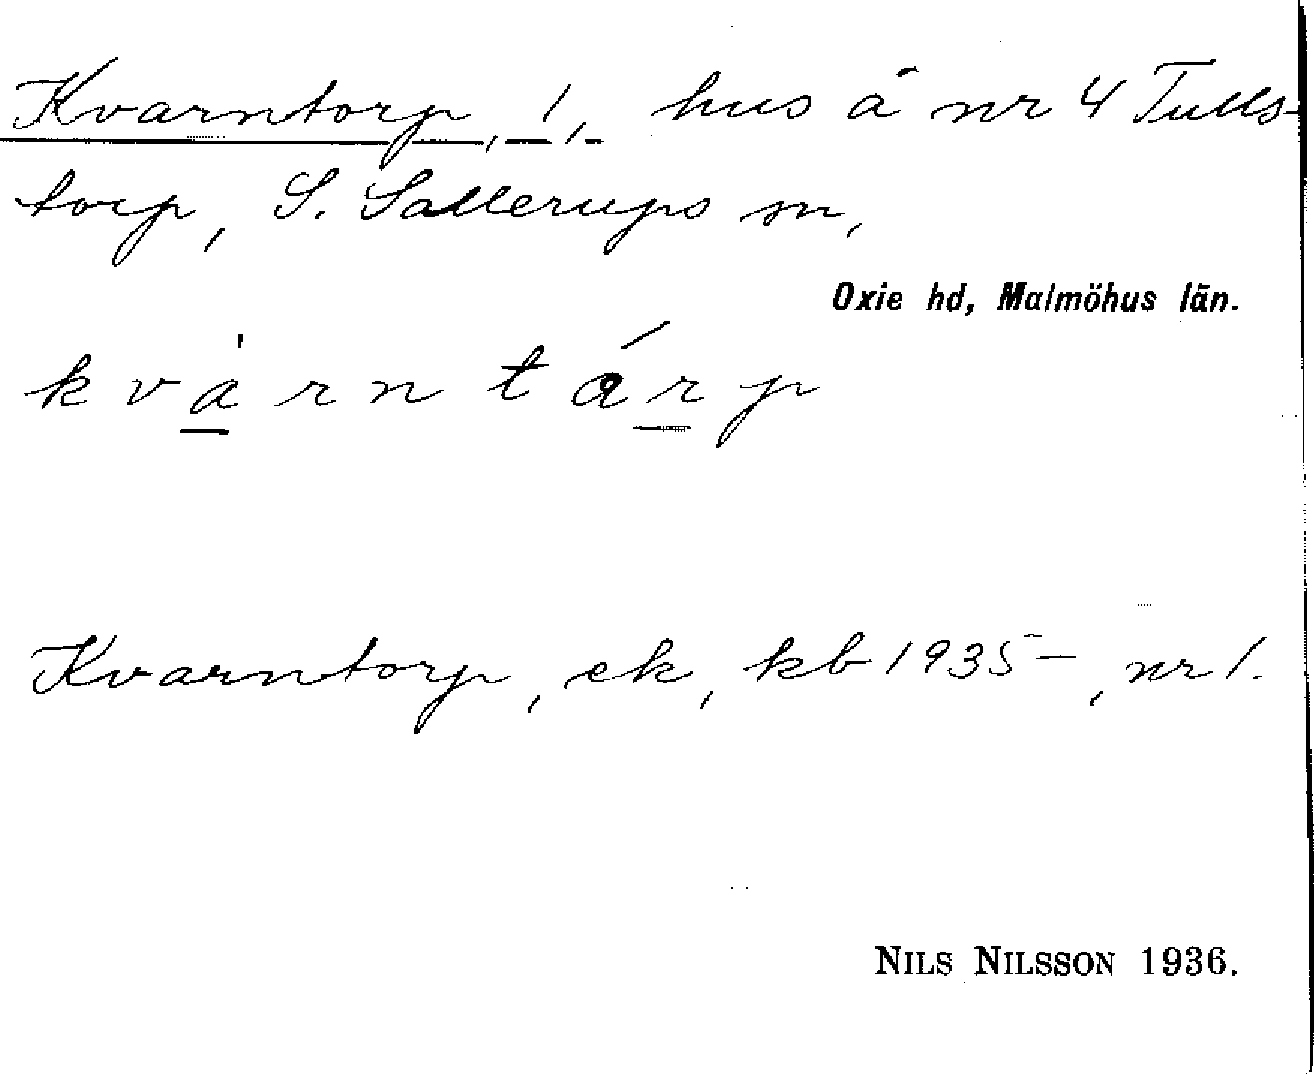 Kvarntorp, 1, hus å nr 4 Tulls-
torp, S. Sallerups sn,
Oxie hd, Malmöhus län.
kvàrntárp
Kvarntorp, ek, kb 1935–, nr 1.
NILS NILSSON 1936.